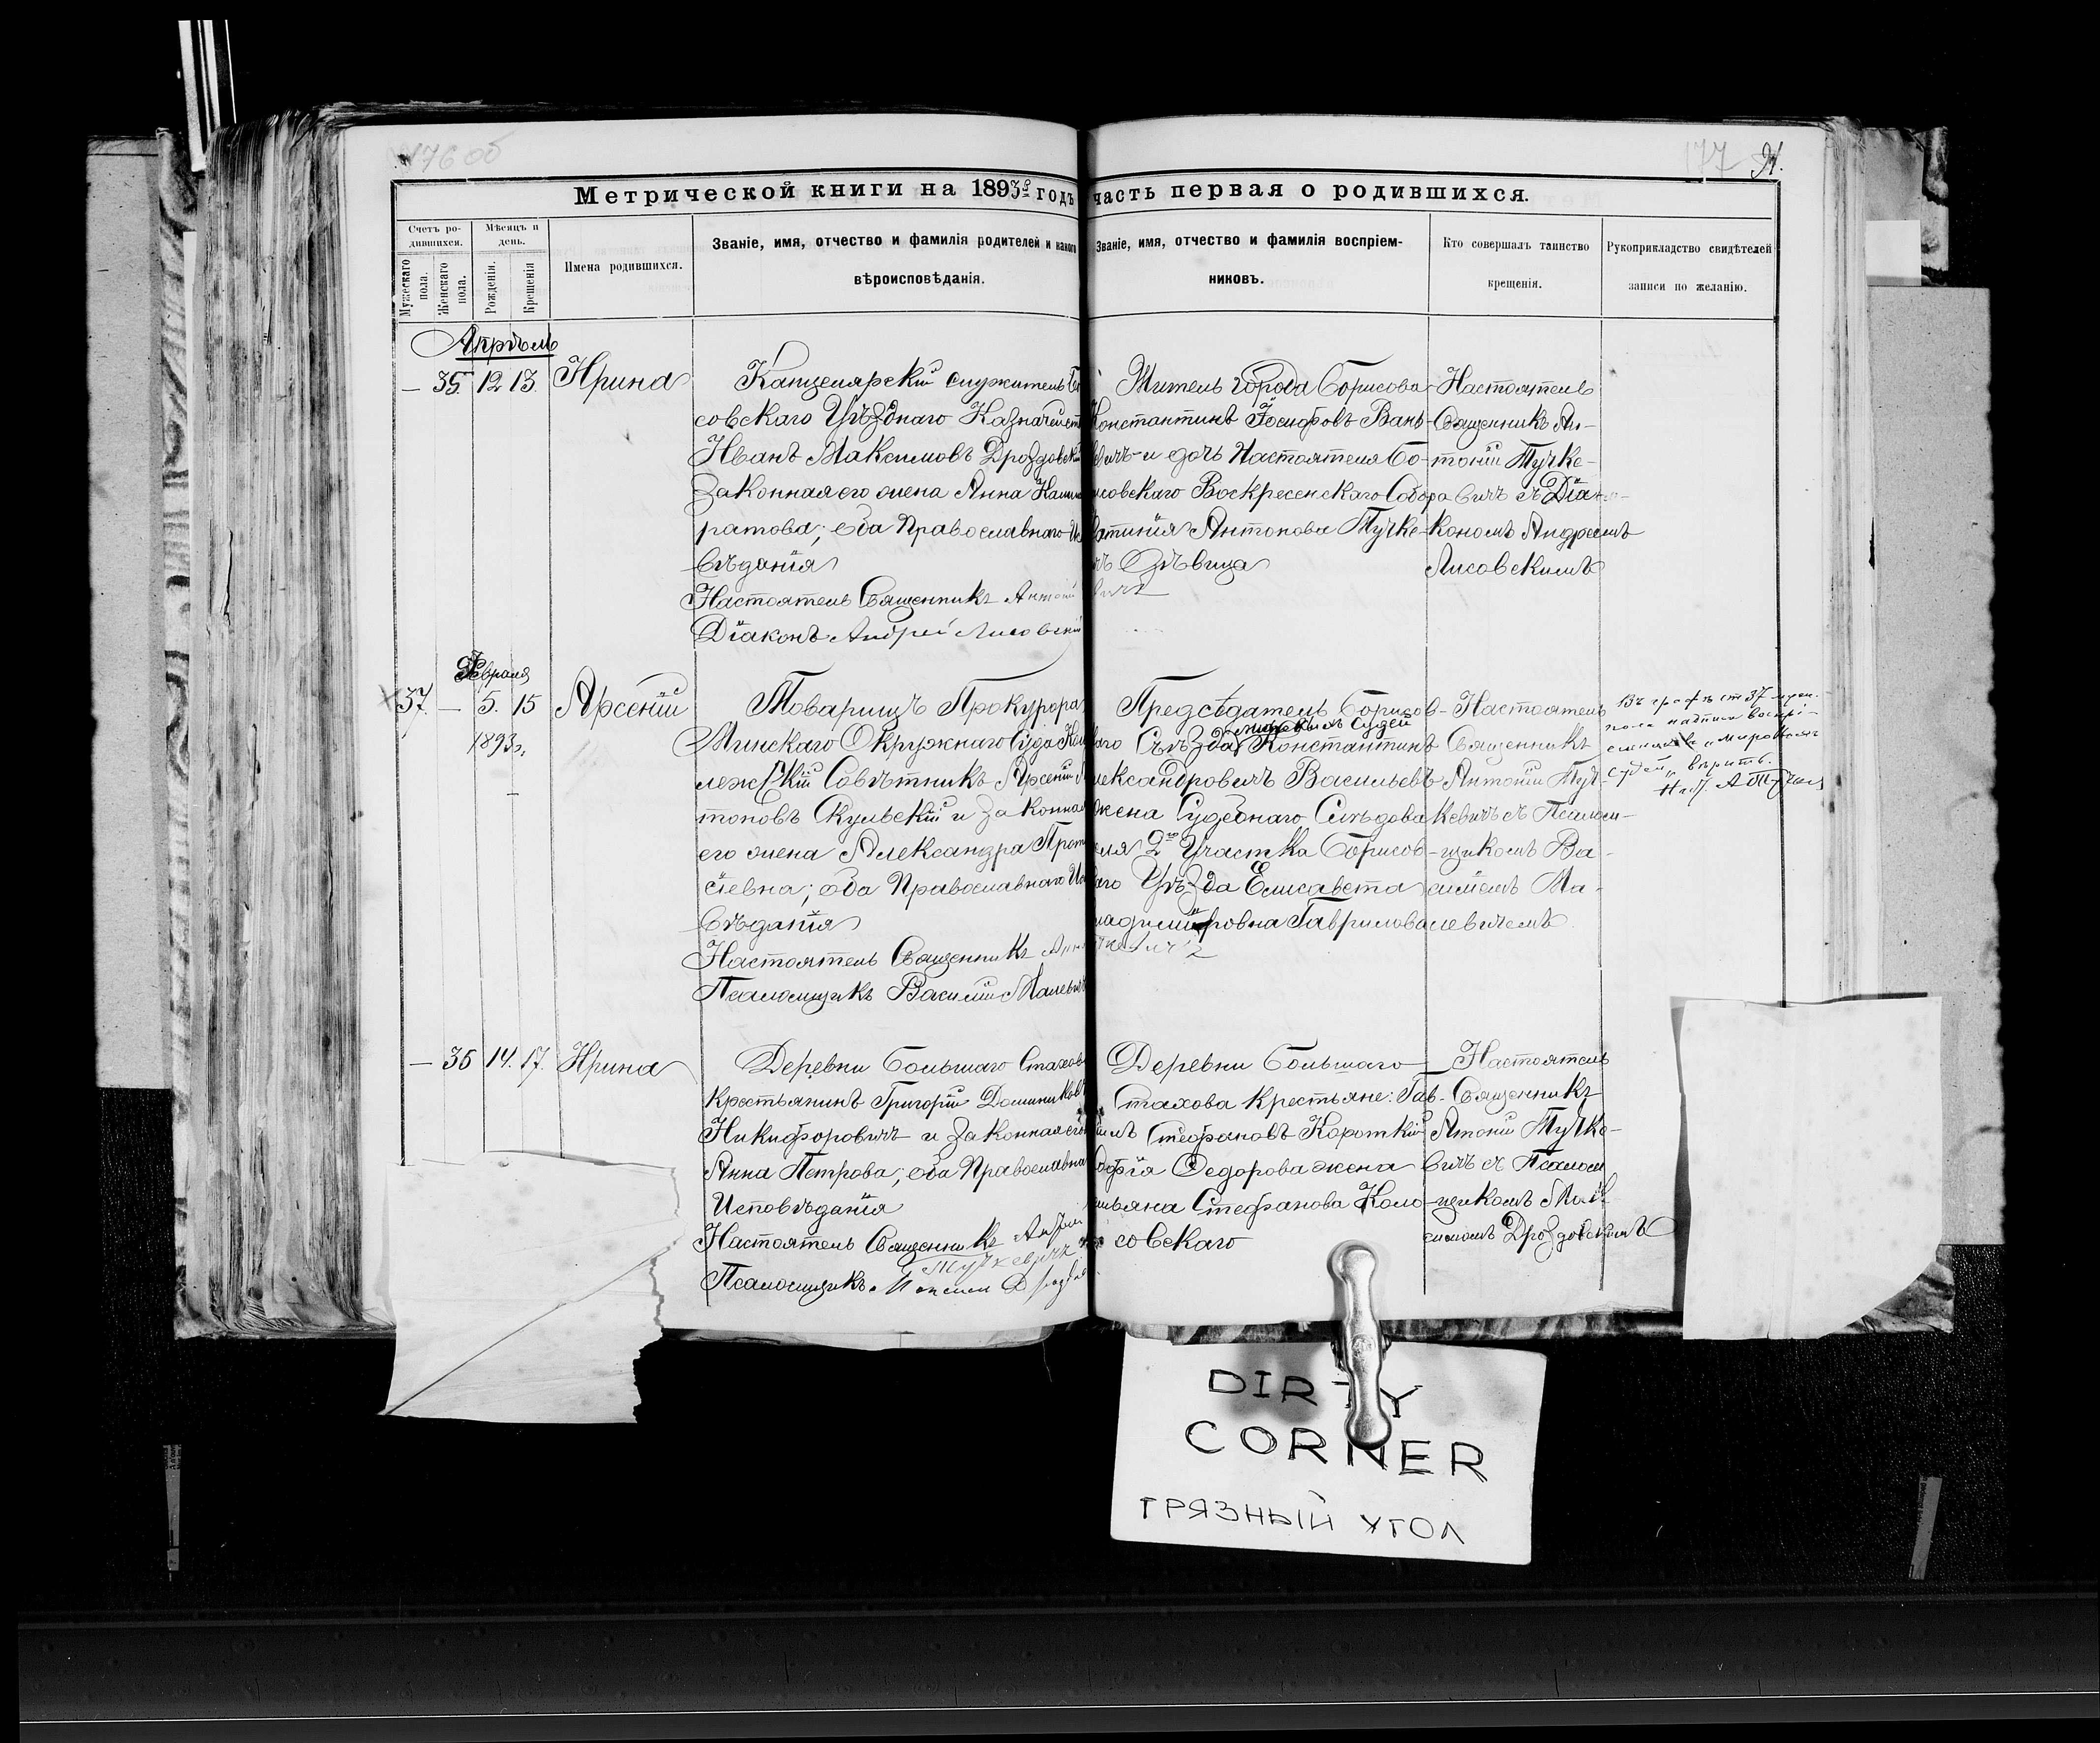 176 об
177 91.
Метрической книги на 1893й годъ часть первая о родившихся.
Счетъ родившихся.
Мужескаго пола.
Женскаго пола.
Мѣсяцъ и день.
Рожденія.
Крещенія
Имена родившихся.
Званіе, имя, отчество и фамилія родителей и какого
вѣроисповѣданія.
Званіе, имя, отчество и фамилія воспріем-
никовъ.
Кто совершалъ таинство
крещенія.
Рукоприкладство свидѣтелей
записи по желанію.
Апрѣль
— 35. 12 13. Ирина
Канцелярскій служитель Бо
совскаго Уѣзднаго Казначейст
Иванъ Максимовъ Дроздовскій
Законная его жена Анна
ратова; оба Православнаго Ис
вѣданія
Настоятель Священникъ Антоній
Діаконъ Андрей Лисовскій
Житель города Борисова
Константинъ Іосифовъ Вань-
вичъ и дочь Настоятеля Бо-
исовскаго Воскресенскаго Собора
Антонова Тучке-
чъ Дѣвица
вичъ
Настоятель
Священникъ Ан-
тоній Тучке-
вичъ съ Діа-
кономъ Андреемъ
Лисовскимъ
Февраля
37. — 5. 15 Арсеній
1893г.
Товарищъ Прокурора
Минскаго Окружнаго Суда Кол
лежскій Совѣтникъ Арсеній
тоновъ Скульскій и законная
его жена Александра
сіевна; оба Православнаго Ис
вѣданія
Настоятель Священникъ
Псаломщикъ Василій Малевич
Предсѣдатель Борисов-
мировыхъ Судей
каго Съѣзда Константинъ
лександровичъ Васильевъ
жена Судебнаго Слѣдова
еля 2го Участка Борисов-
каго Уѣзда Елисавета
ладиміровна Гаврилова
Настоятель
Священникъ
Антоній Туч-
кевичъ съ Псалом-
щикомъ Ва-
силіемъ Ма-
левичемъ
Въ графѣ ст 37 муж.
пола надписи воспрі-
емниковъ „мировыхъ
судей„ вѣрить.
— 36 14. 17. Ирина
Деревни Большаго Стахов
Крестьянинъ Григорій Доминиковъ
Никифоровичъ и законная его
Анна Петрова; оба Православна
Исповѣданія
Настоятель Священникъ Антоній
Тучкевичъ
Псаломщикъ Максим Дроздов
Деревни Большаго
Стахова Крестьяне: Гав-
іилъ Стефановъ Короткій
офія Федорова жена
мьяна Стефанова Коло-
совскаго
Настоятель
Священникъ
Антоній Тучке-
вичъ съ Псалом
щикомъ Мак
симомъ Дроздовскимъ
DIRTY
CORNER
ГРЯЗНЫЙ УГОЛ